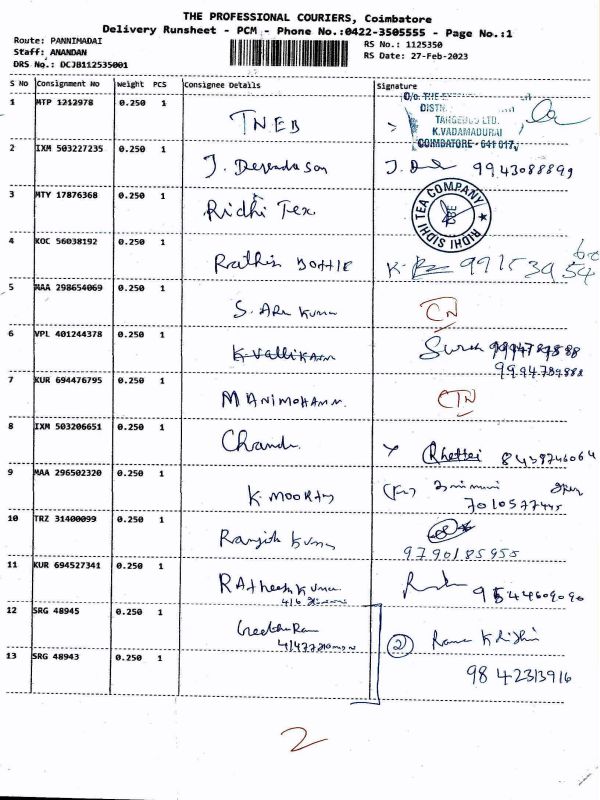 THE PROFESSIONAL COURIERS, Coimbatore
Delivery Runsheet - PCM - Phone No.:0422-3505555 - Page No.:1
Route: PANNIMADAI RS No.: 1125350
Staff: ANANDAN RS Date: 27-Feb-2023
DRS No.: DCJB112535001
S No Consignment No Weight PCS Consignee Details Signature
1 MTP 1212978 0.250 1 TNEB
TANGEDCO LTD.
K.VADAMADURAI
COIMBATORE - 641 017
2 IXM 503227235 0.250 1 J. Devendason 9943088899
3 MTY 17876368 0.250 1 Ridhi Tex RIDHI SIDHI TEA COMPANY
4 KOC 56038192 0.250 1 Rathis BOTTLE
5 MAA 298654069 0.250 1 S. Arun Kumar CN
6 VPL 401244378 0.250 1 K. Vallikann
9994789888
7 KUR 694476795 0.250 1 MANIMOHANN. CTN
8 IXM 503206651 0.250 1 Chandr 8439746064
9 MAA 296502320 0.250 1 K. MOORTHY
7010577445
10 TRZ 31400099 0.250 1 Ranjith Kumar
9790185955
11 KUR 694527341 0.250 1 Ratheesh Kumar 9544609090
12 SRG 48945 0.250 1 Geetha Ram 2 Rama Krishn
13 SRG 48943 0.250 1 9842313916
2